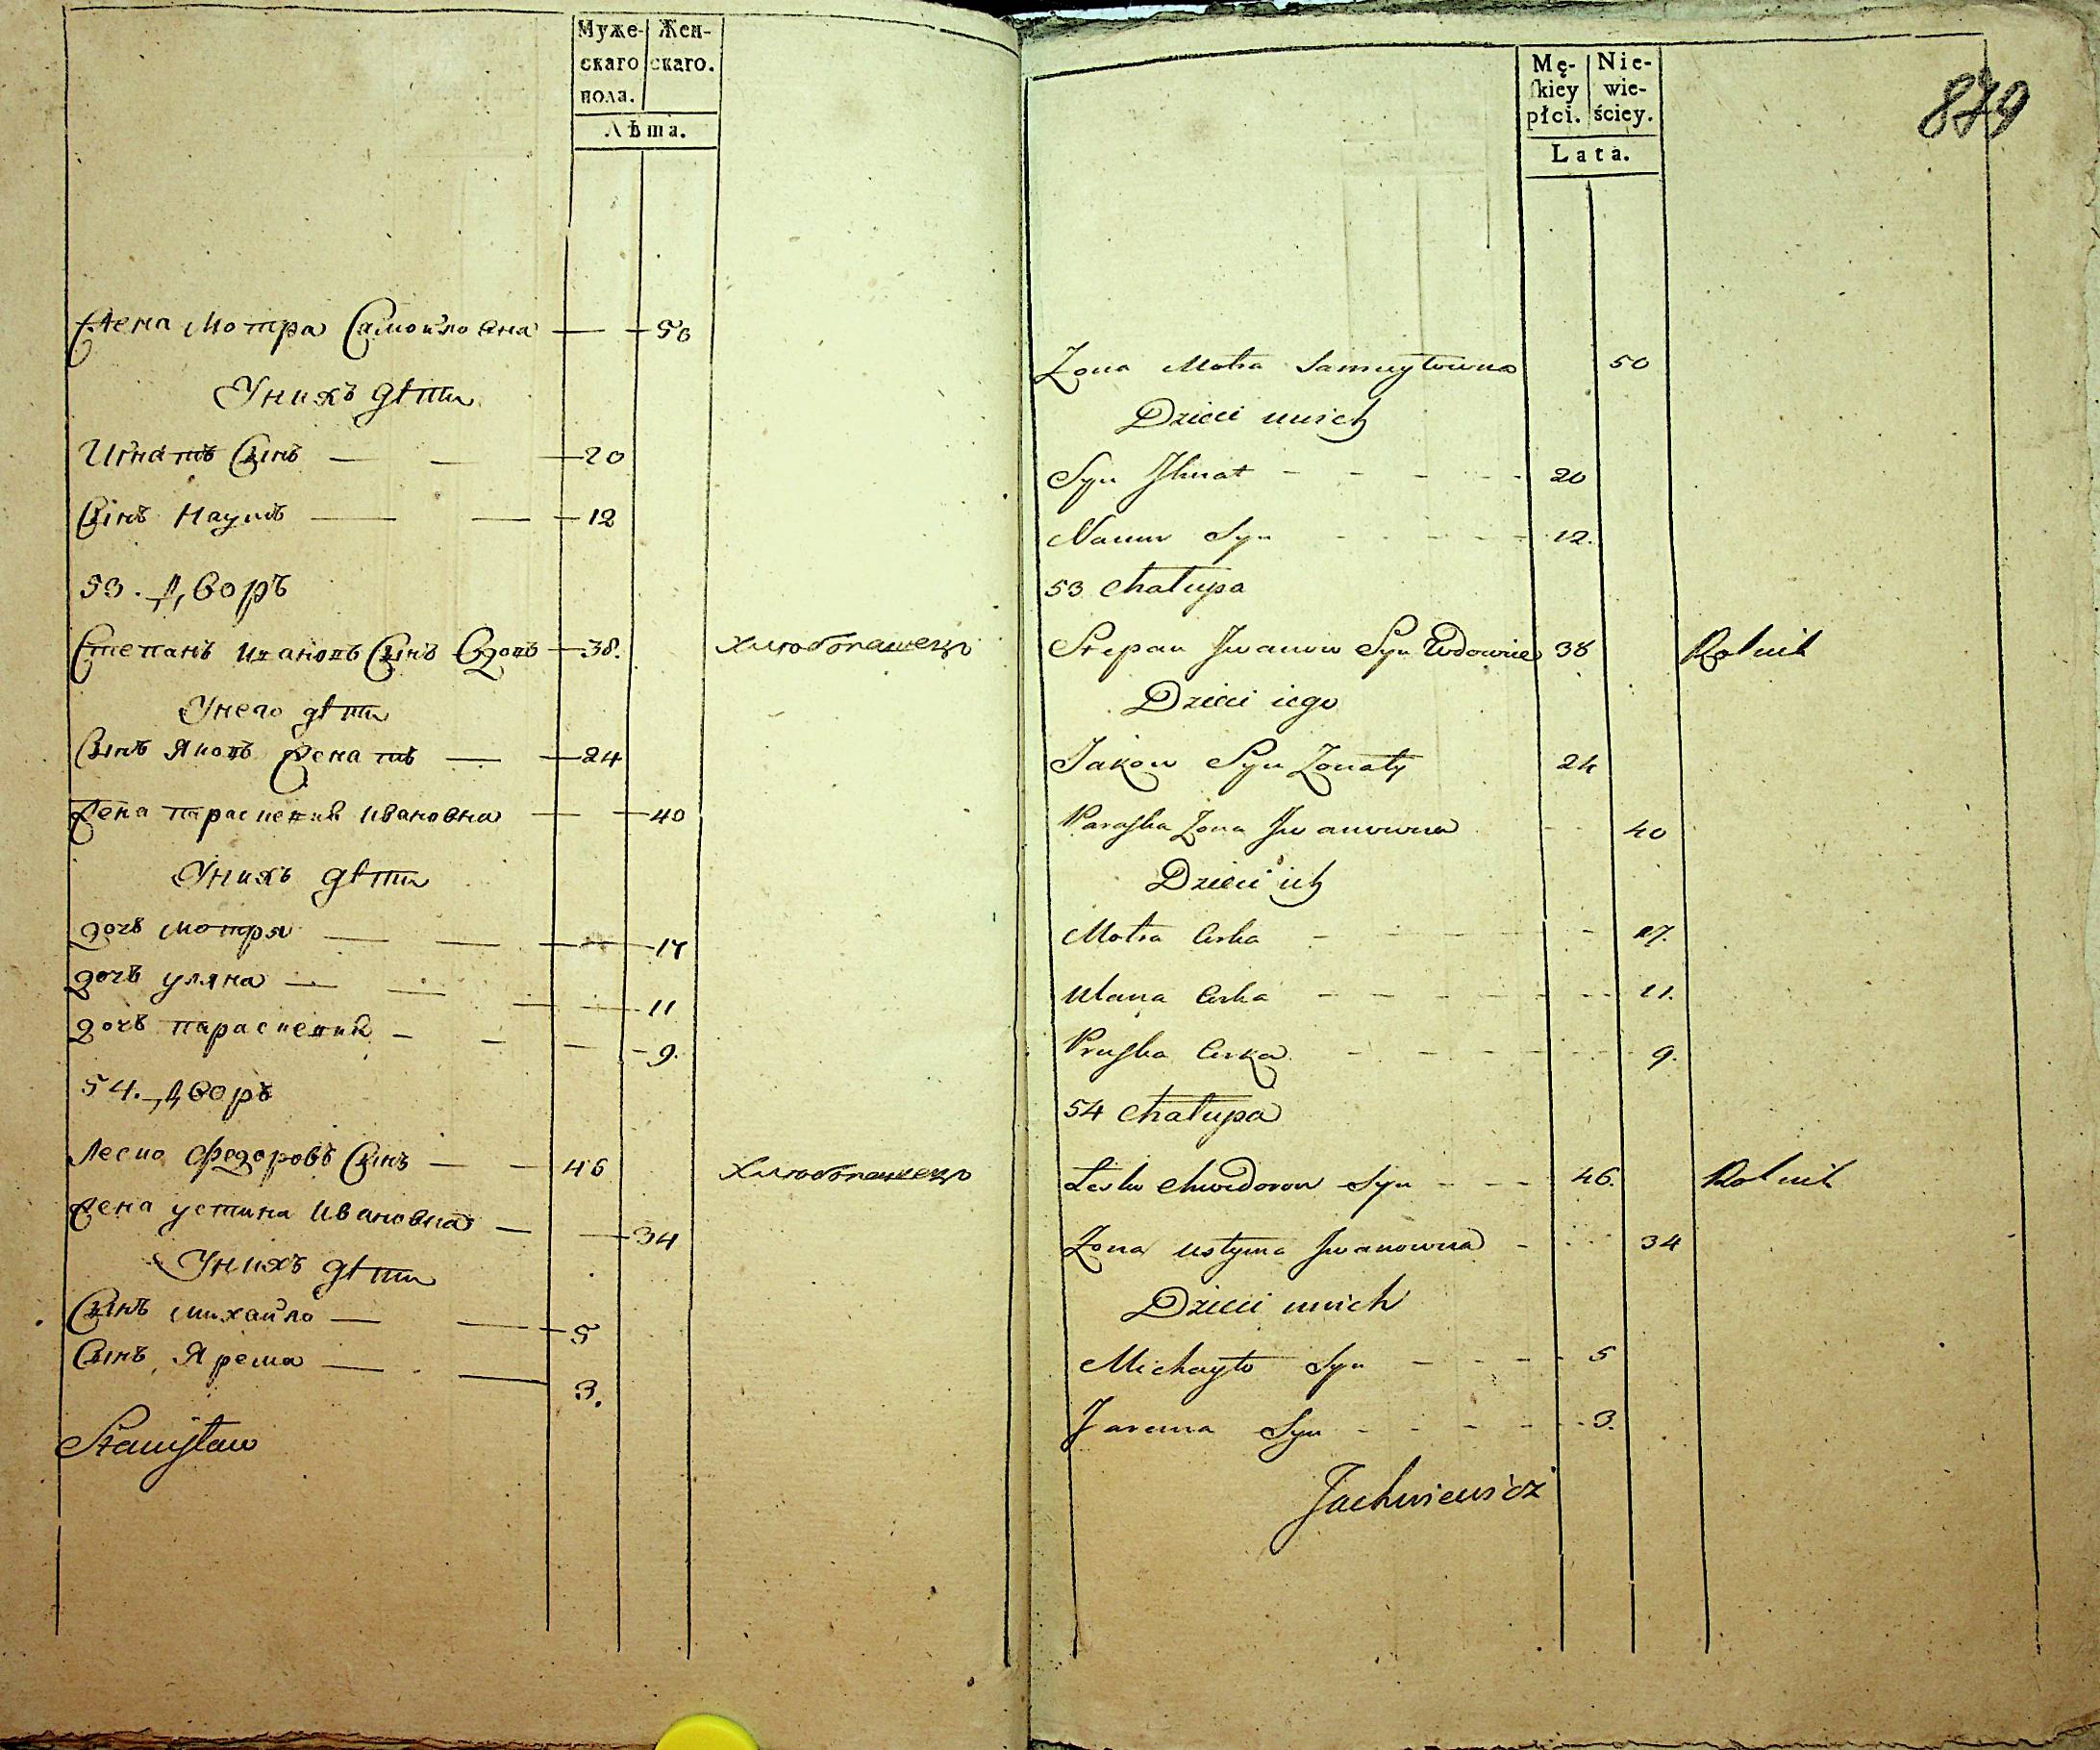 Муже- Жен-
скаго скаго.
пола.
Лѣта.
Жена Мотра Самойловна — 50
У нихъ дѣти
Игнатъ Сынъ — — 20
Сынъ Наумъ — — 12
53. Дворъ
Степанъ Ивановъ Сынъ Вдовъ 38. Хлюбопашецъ
У него дѣти
Сынъ Яковъ Женатъ — 24
Жена Параскевия Ивановна — 40
У нихъ дѣти
дочь Мотря — — 17
дочь Уляна — — — 11
дочь Параскевия — — — 9.
54. Дворъ
Леско Федоровъ Сынъ — — 46 Хлюбопашецъ
Жена Устина Ивановна — 34
У нихъ дѣти
Сынъ Михайло — — 5
Сынъ Ярема — — 3.
Stanisław
879
Mę- Nie-
skiey wie-
płci. ściey.
Lata.
Zona Motra Samuyłowna 50
Dzieci unich
Syn Ihnat - - - - 20
Naum Syn - - - - 12.
53 Chałupa
Stepan Iwanow Syn Wdowiec 38 Rolnik
Dzieci iego
Jakow Syn Zonaty 24
Paraska Zona Iwanowna - - 40
Dzieci ich
Motra Corka - - - - - 17.
Ulana Corka - - - - - - 11.
Pruska Corka - - - - - 9.
54 Chałupa
Lesko Chwedorow Syn - - - 46. Rolnik
Zona Ustyma Iwanowna - - - 34
Dzieci unich
Michayło Syn - - - - 5
Jarema Syn - - - - - 3.
Jachniewicz